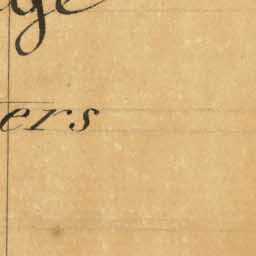 ge
ers